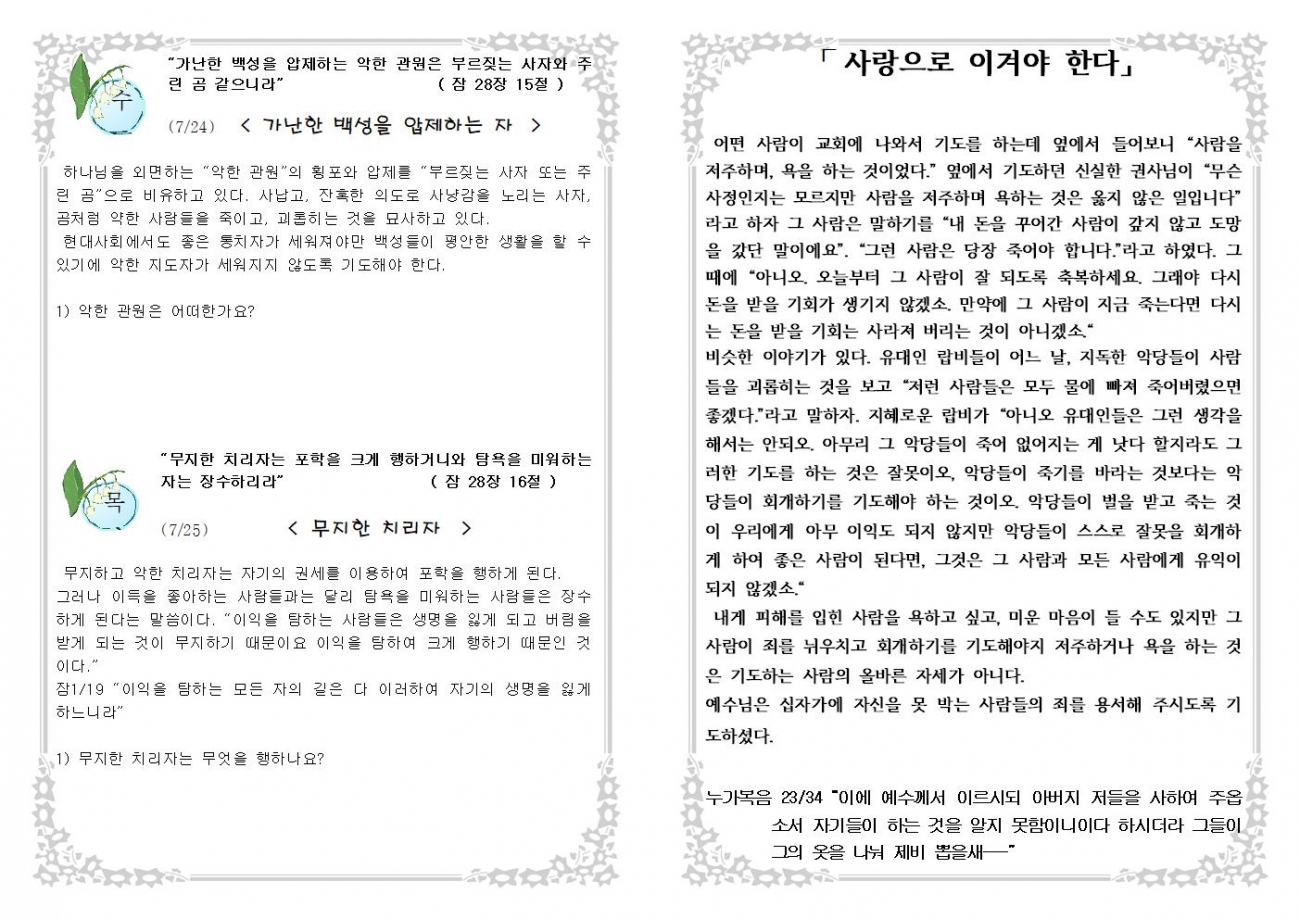 “가난한 백성을 압제하는 악한 관원은 부르짖는 사자와 주
린 곰 같으니라” ( 잠 28장 15절 )
수
(7/24) < 가난한 백성을 압제하는 자 >
하나님을 외면하는 “악한 관원”의 횡포와 압제를 “부르짖는 사자 또는 주
린 곰”으로 비유하고 있다. 사납고, 잔혹한 의도로 사냥감을 노리는 사자,
곰처럼 약한 사람들을 죽이고, 괴롭히는 것을 묘사하고 있다.
현대사회에서도 좋은 통치자가 세워져야만 백성들이 평안한 생활을 할 수
있기에 악한 지도자가 세워지지 않도록 기도해야 한다.
1) 악한 관원은 어떠한가요?
“무지한 치리자는 포학을 크게 행하거니와 탐욕을 미워하는
자는 장수하리라” ( 잠 28장 16절 )
목
(7/25) < 무지한 치리자 >
무지하고 악한 치리자는 자기의 권세를 이용하여 포학을 행하게 된다.
그러나 이득을 좋아하는 사람들과는 달리 탐욕을 미워하는 사람들은 장수
하게 된다는 말씀이다. “이익을 탐하는 사람들은 생명을 잃게 되고 버림을
받게 되는 것이 무지하기 때문이요 이익을 탐하여 크게 행하기 때문인 것
이다.”
잠1/19 “이익을 탐하는 모든 자의 길은 다 이러하여 자기의 생명을 잃게
하느니라”
1) 무지한 치리자는 무엇을 행하나요?
「 사랑으로 이겨야 한다」
어떤 사람이 교회에 나와서 기도를 하는데 옆에서 들어보니 “사람을
저주하며, 욕을 하는 것이었다.” 옆에서 기도하던 신실한 권사님이 “무슨
사정인지는 모르지만 사람을 저주하며 욕하는 것은 옳지 않은 일입니다”
라고 하자 그 사람은 말하기를 “내 돈을 꾸어간 사람이 갚지 않고 도망
을 갔단 말이에요”. “그런 사람은 당장 죽어야 합니다.”라고 하였다. 그
때에 “아니오. 오늘부터 그 사람이 잘 되도록 축복하세요. 그래야 다시
돈을 받을 기회가 생기지 않겠소. 만약에 그 사람이 지금 죽는다면 다시
는 돈을 받을 기회는 사라져 버리는 것이 아니겠소.“
비슷한 이야기가 있다. 유대인 랍비들이 어느 날, 지독한 악당들이 사람
들을 괴롭히는 것을 보고 “저런 사람들은 모두 물에 빠져 죽어버렸으면
좋겠다.”라고 말하자. 지혜로운 랍비가 “아니오 유대인들은 그런 생각을
해서는 안되오. 아무리 그 악당들이 죽어 없어지는 게 낫다 할지라도 그
러한 기도를 하는 것은 잘못이오, 악당들이 죽기를 바라는 것보다는 악
당들이 회개하기를 기도해야 하는 것이오. 악당들이 벌을 받고 죽는 것
이 우리에게 아무 이익도 되지 않지만 악당들이 스스로 잘못을 회개하
게 하여 좋은 사람이 된다면, 그것은 그 사람과 모든 사람에게 유익이
되지 않겠소.“
내게 피해를 입힌 사람을 욕하고 싶고, 미운 마음이 들 수도 있지만 그
사람이 죄를 뉘우치고 회개하기를 기도해야지 저주하거나 욕을 하는 것
은 기도하는 사람의 올바른 자세가 아니다.
예수님은 십자가에 자신을 못 박는 사람들의 죄를 용서해 주시도록 기
도하셨다.
누가복음 23/34 “이에 예수께서 이르시되 아버지 저들을 사하여 주옵
소서 자기들이 하는 것을 알지 못함이니이다 하시더라 그들이
그의 옷을 나눠 제비 뽑을새──”